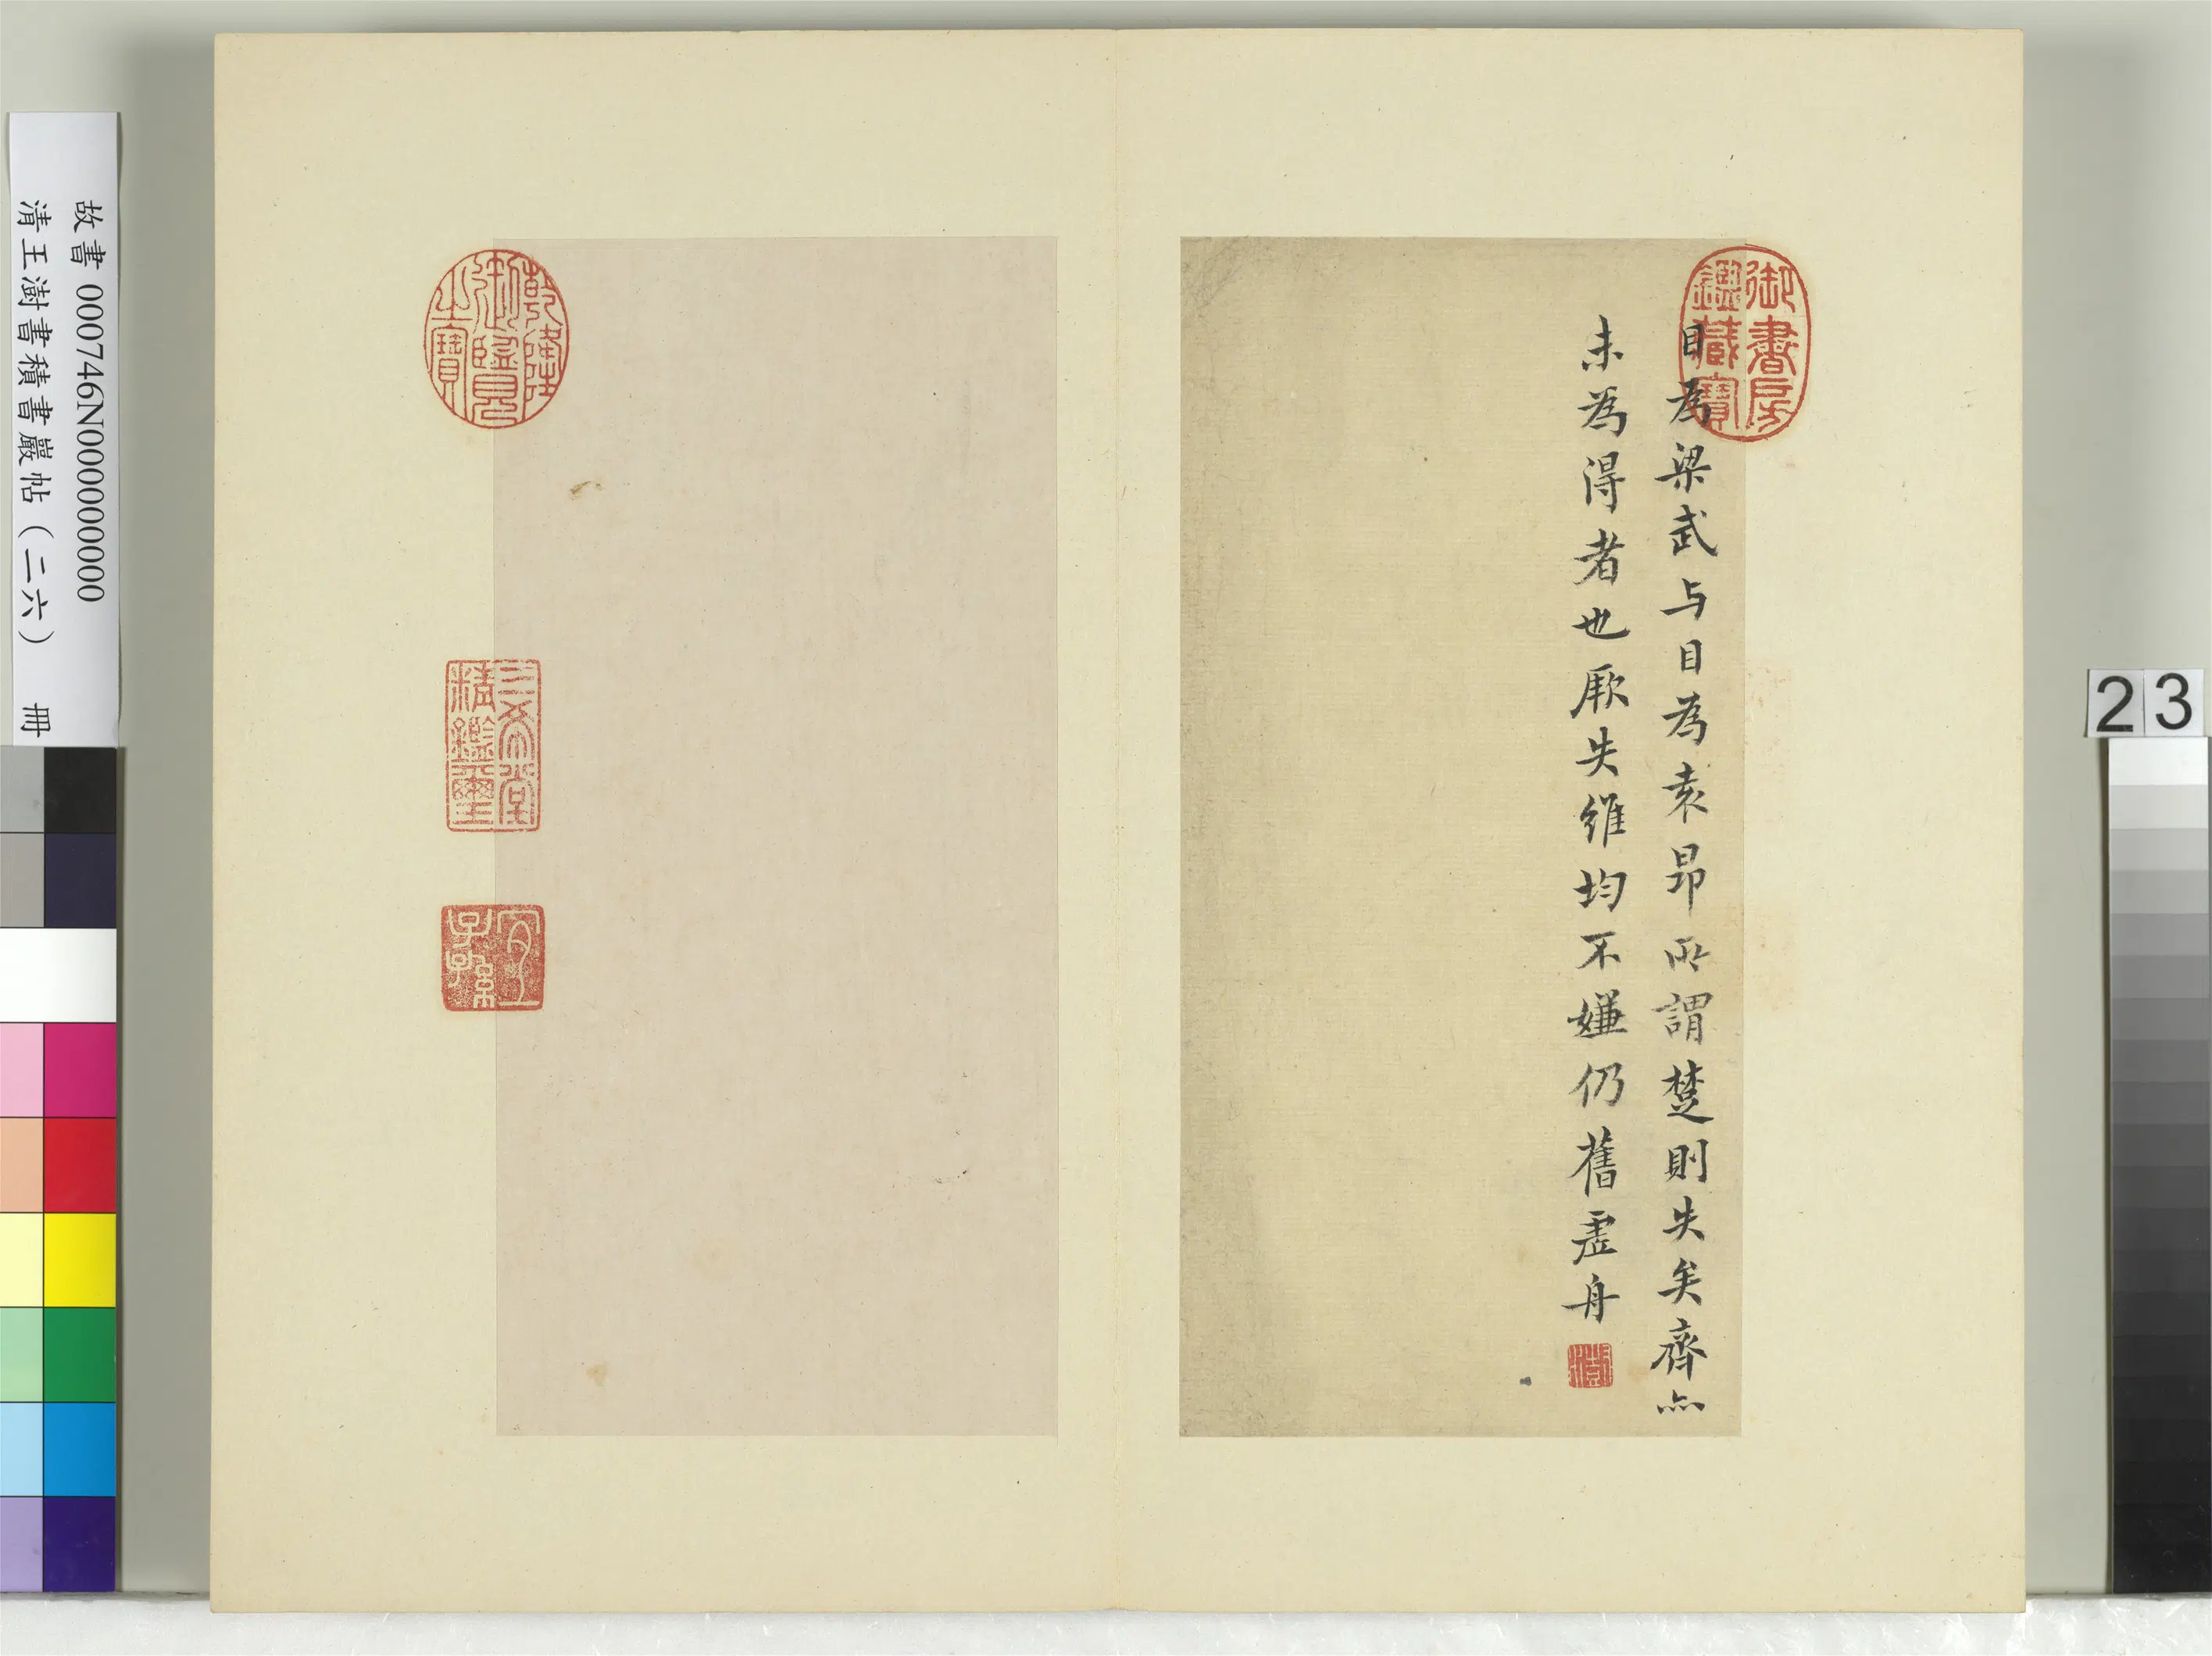 目為梁武与目為袁昂所謂楚則失矣齊亦
未為得者也厥失維均不嫌仍舊虛舟
澍
御書房
鑑藏寶
乾隆
御覽
之寶
三希堂
精鑑璽
宜
子孫
故書 000746N000000000
清王澍書積書巖帖（二六） 冊
23